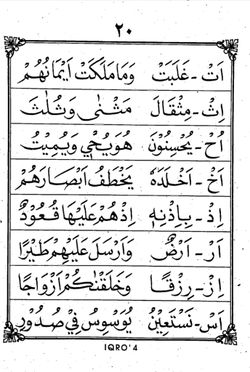 ٢٠
اَتْ - غَلَبَتْ وَمَا مَلَكَتْ اَيْمَانُهُمْ
اِثْ - مِثْقَالَ مَثْنٰى وَثُلٰثَ
اُحْ - يُحْسِنُوْنَ هُوَيُحْيِ وَيُمِيْتُ
اَخْ - اَخْلَدَهٗ يَخْطَفُ اَبْصَارَهُمْ
اِذْ - بِاِذْنِهٖ اِذْهُمْ عَلَيْهَا قُعُوْدٌ
اَرْ - اَرْضٌ وَاَرْسَلَ عَلَيْهِمْ طَيْرًا
اِزْ - رِزْقًا وَخَلَقْنٰكُمْ اَزْوَاجًا
اَسْ - نَسْتَعِيْنُ يُوَسْوِسُ فِيْ صُدُوْرِ
IQRO' 4